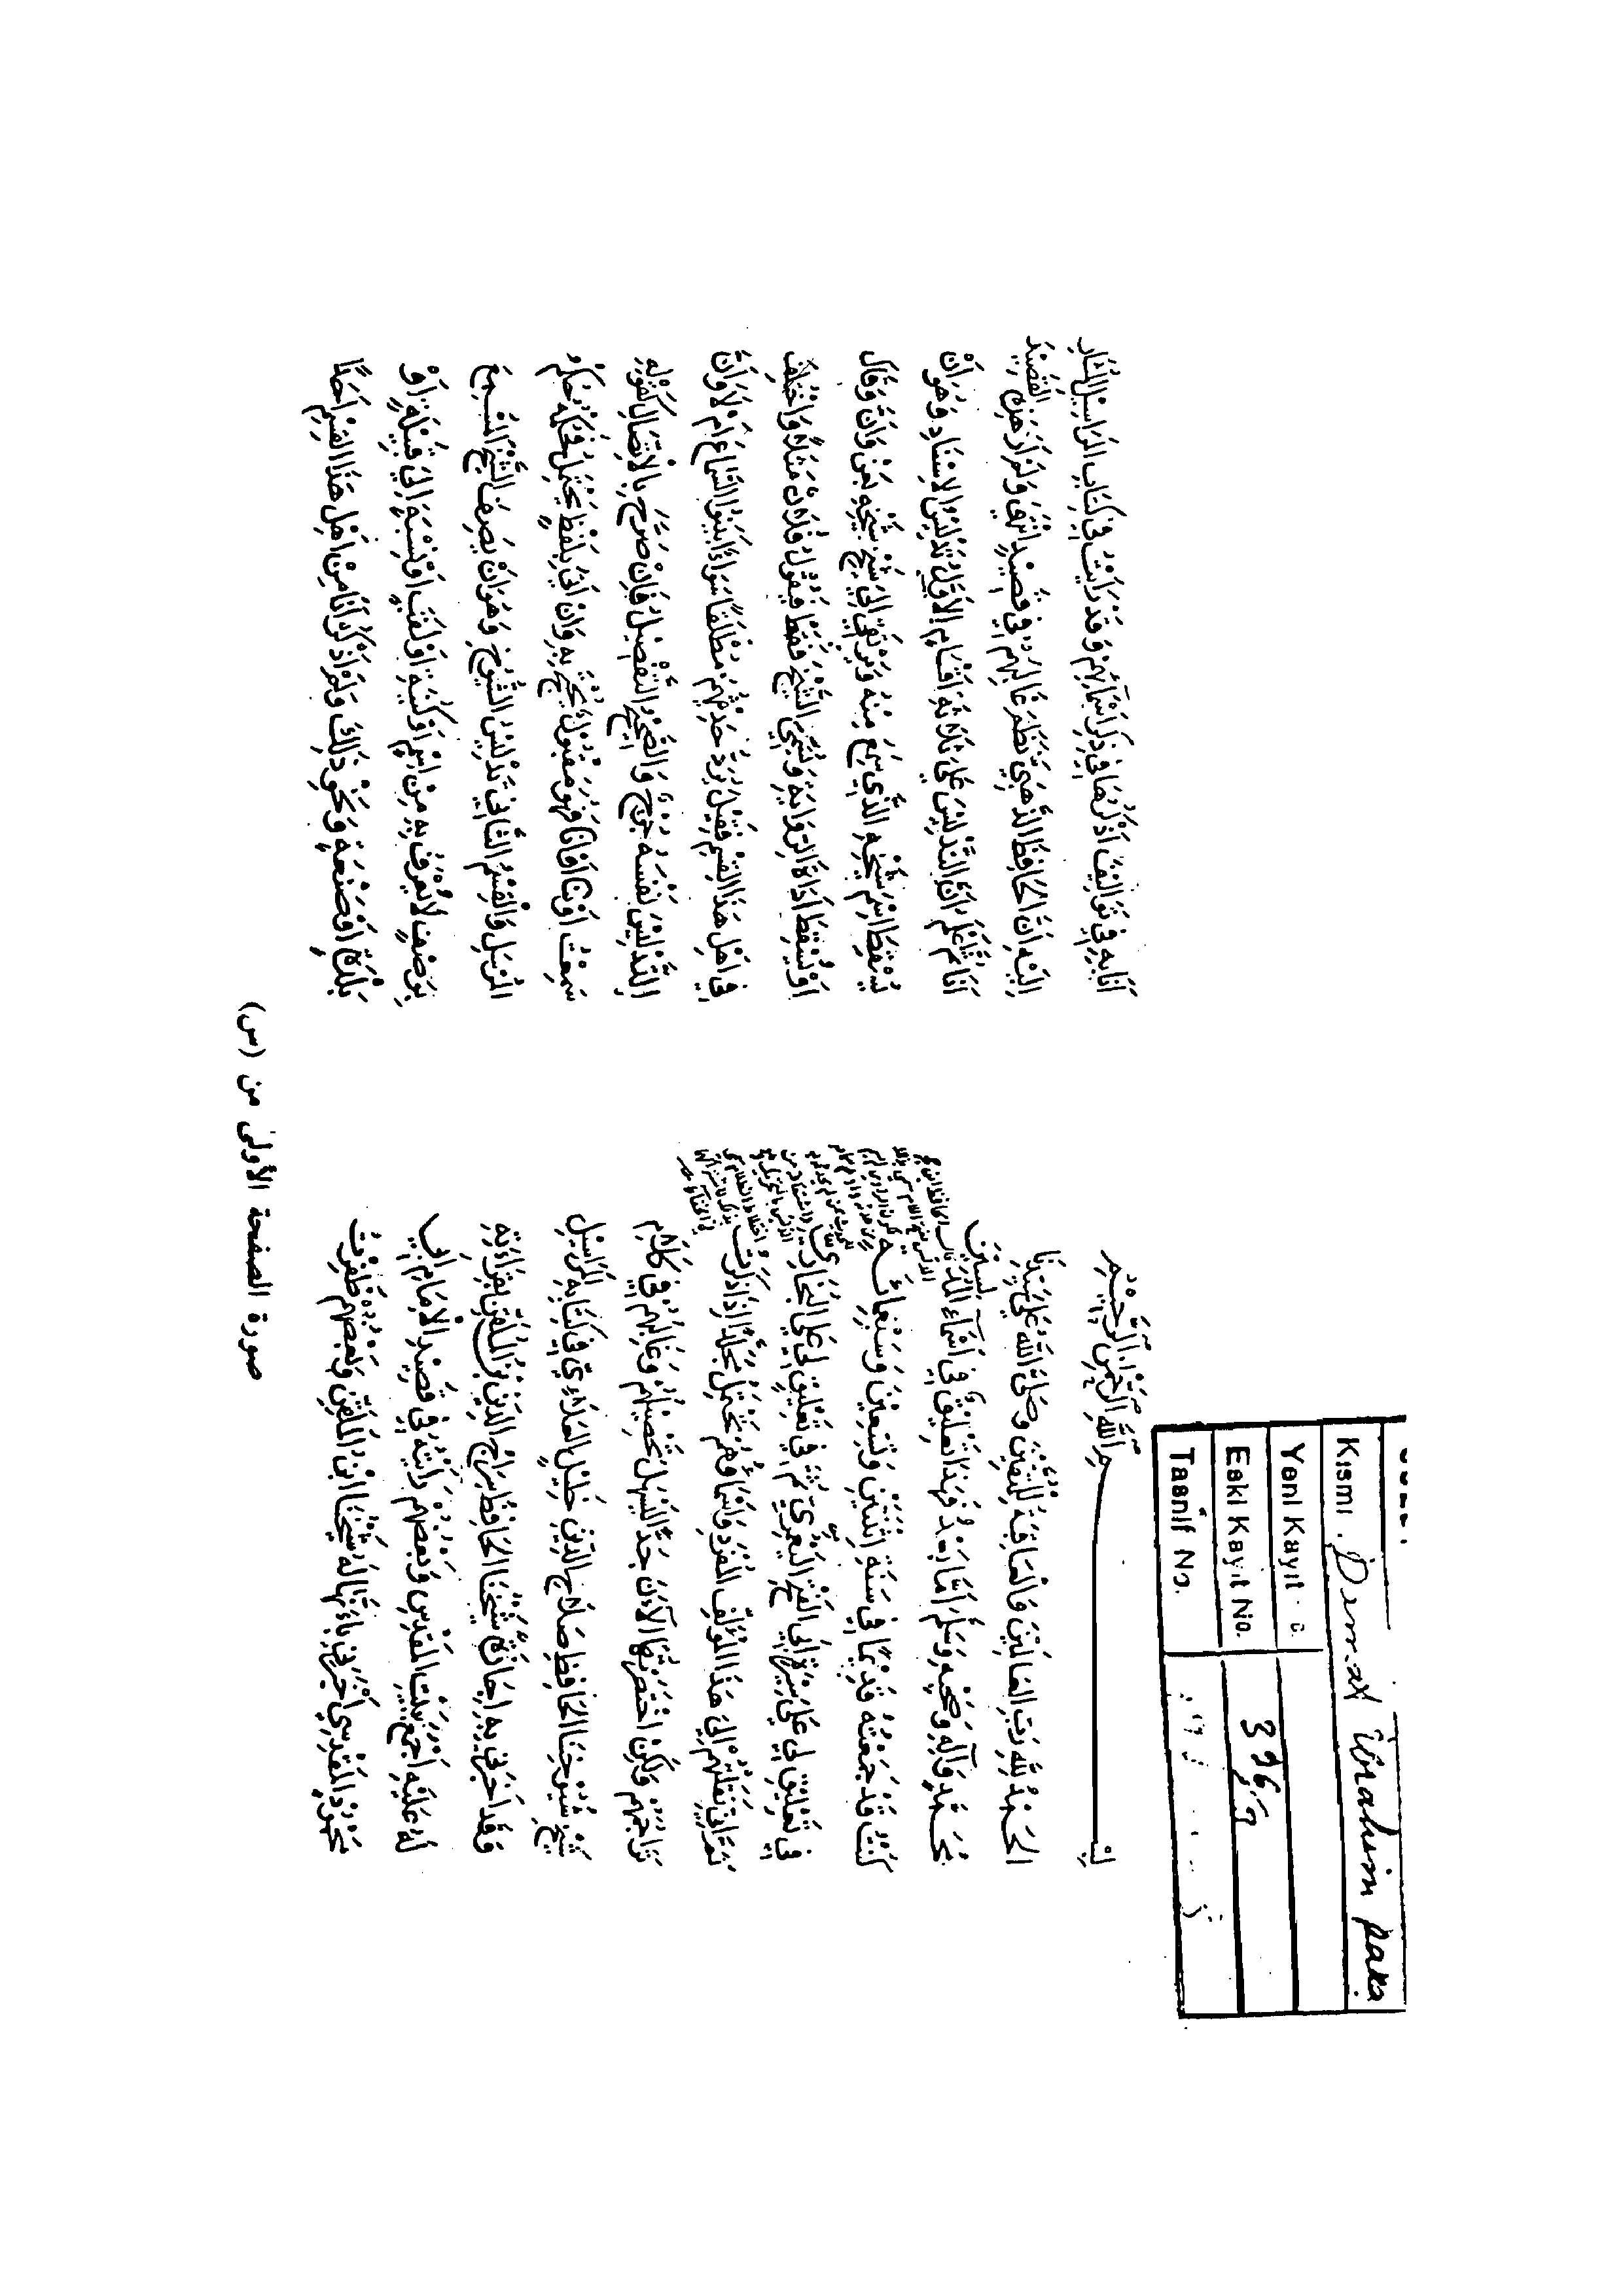 Kısmı . Damat İbrahim Paşa
Yeni Kayıt
Eski Kayıt No. 396
Tasnif No.
بسم الله الرحمن الرحيم
الحمد لله رب العالمين والعاقبة للمتقين وصلى الله على سيدنا
محمد وآله وصحبه وسلم أما بعد فهذا تعليق في أسماء المدلسين
كنت قد جمعته قديما في سنة اثنتين وتسعين وسبعمائة
في تعليق لي على سيرة أبي الفتح اليعمري ثم في تعليق لي على البخاري
ثم إني نقلتهم إلى هذا المؤلف المفرد وأسماؤهم تحتمل مجلدا إذا ذكرت
تراجمهم ولكن اختصرتها الآن جدا ليسهل تحصيلهم وغالبهم في كلام
شيخ شيوخنا الحافظ صلاح الدين خليل العلائي في كتابه المراسيل
وقد أخبرني به إجازة شيخنا الحافظ سراج الدين بن الملقن بقراءته
له عليه أجمع ببيت المقدس وبعضهم رأيته في قصيد الإمام أبي
محمود المقدسي أخبرني بأبياتها له شيخنا ابن الملقن وبعضهم ظفرت
أنا به في تواليف أذكرها في ذكر أسمائهم وقد رأيت في كتاب المراسيل المشار
إليه أن الحافظ الذهبي نظم غالبهم في قصيد انتهى ولم أر هذه القصيد
أنا ثم اعلم أن التدليس على ثلاثة أقسام الأول تدليس الإسناد وهو أن
يسقط اسم شيخه الذي سمع منه ويرتقي إلى شيخ شيخه بعن وأن وقال
أو يسقط أداة الرواية ويسمي الشيخ فقط فيقول فلان مثلا واختلف
في أهل هذا القسم فقيل يرد حديثهم مطلقا سواء أثبتوا السماع أم لا وأن
التدليس نفسه جرح والصحيح التفصيل فإن صرح بالاتصال كقوله
سمعت أو نا أو أنا فهو مقبول يحتج به وإن أتى بلفظ يحتمل فحكمه حكم
المرسل والقسم الثاني تدليس الشيوخ وهو أن يصف الشيخ المسمع
بوصف لا يعرف به من اسم أو كنية أو لقب أو نسبة إلى قبيلة أو
بلدة أو صنعة ونحو ذلك ولم أذكر أنا من أهل هذا القسم أحدا
صورة الصفحة الأولى من (س)